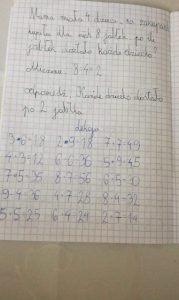 Mama miała 4 dzieci, na zakupach
kupiła dla nich 8 jabłek, po ile
jabłek dostało każde dziecko?
Obliczenie: 8:4=2
odpowiedź: Każde dziecko dostało
po 2 jabłka.
lekcja
3·6=18 2·9=18 7·7=49
4·3=12 6·6=36 5·9=45
7·5=35 8·7=56 6·5=30
9·4=36 4·7=28 8·4=32
5·5=25 6·4=24 2·7=14